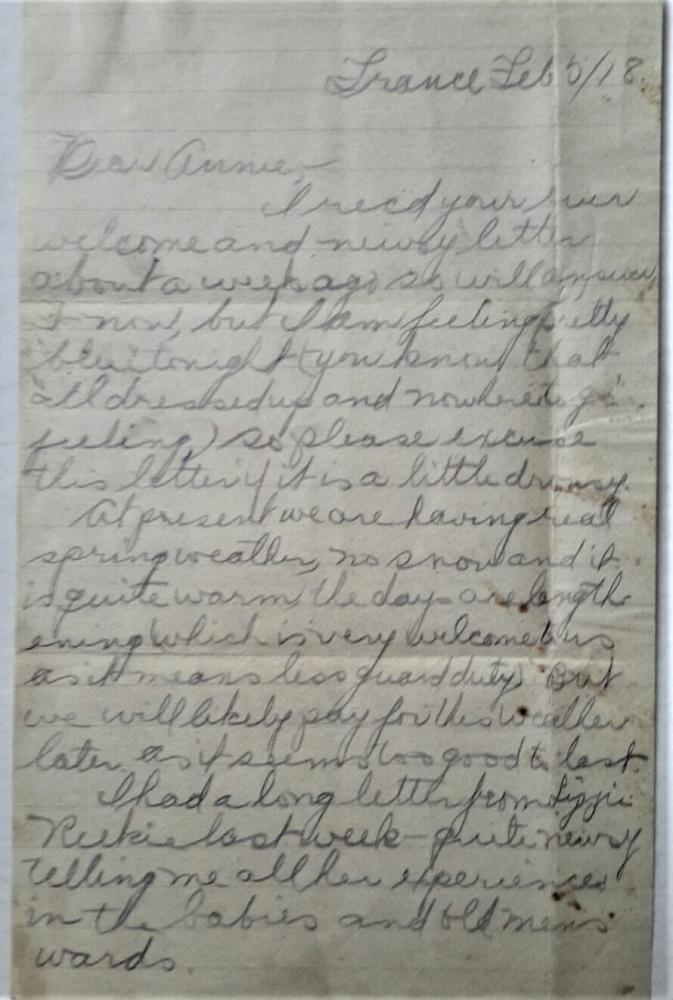 France Feb 5/18.
Dear Annie,—
I rec'd your ever
welcome and newsy letter
about a week ago so will answer
it now, but I am feeling pretty
blue tonight (you know that
"all dressed up and nowhere to go"
feeling) so please excuse
this letter if it is a little
At present we are having real
spring weather, no snow and it
is quite warm, the days are length
ening (which is very welcome to us
as it means less guard duty) But
we will likely pay for this weather
later as it seems too good to last.
I had a long letter from Lizzie
last week - quite newsy
telling me all her experiences
in the babies and old mens
wards.